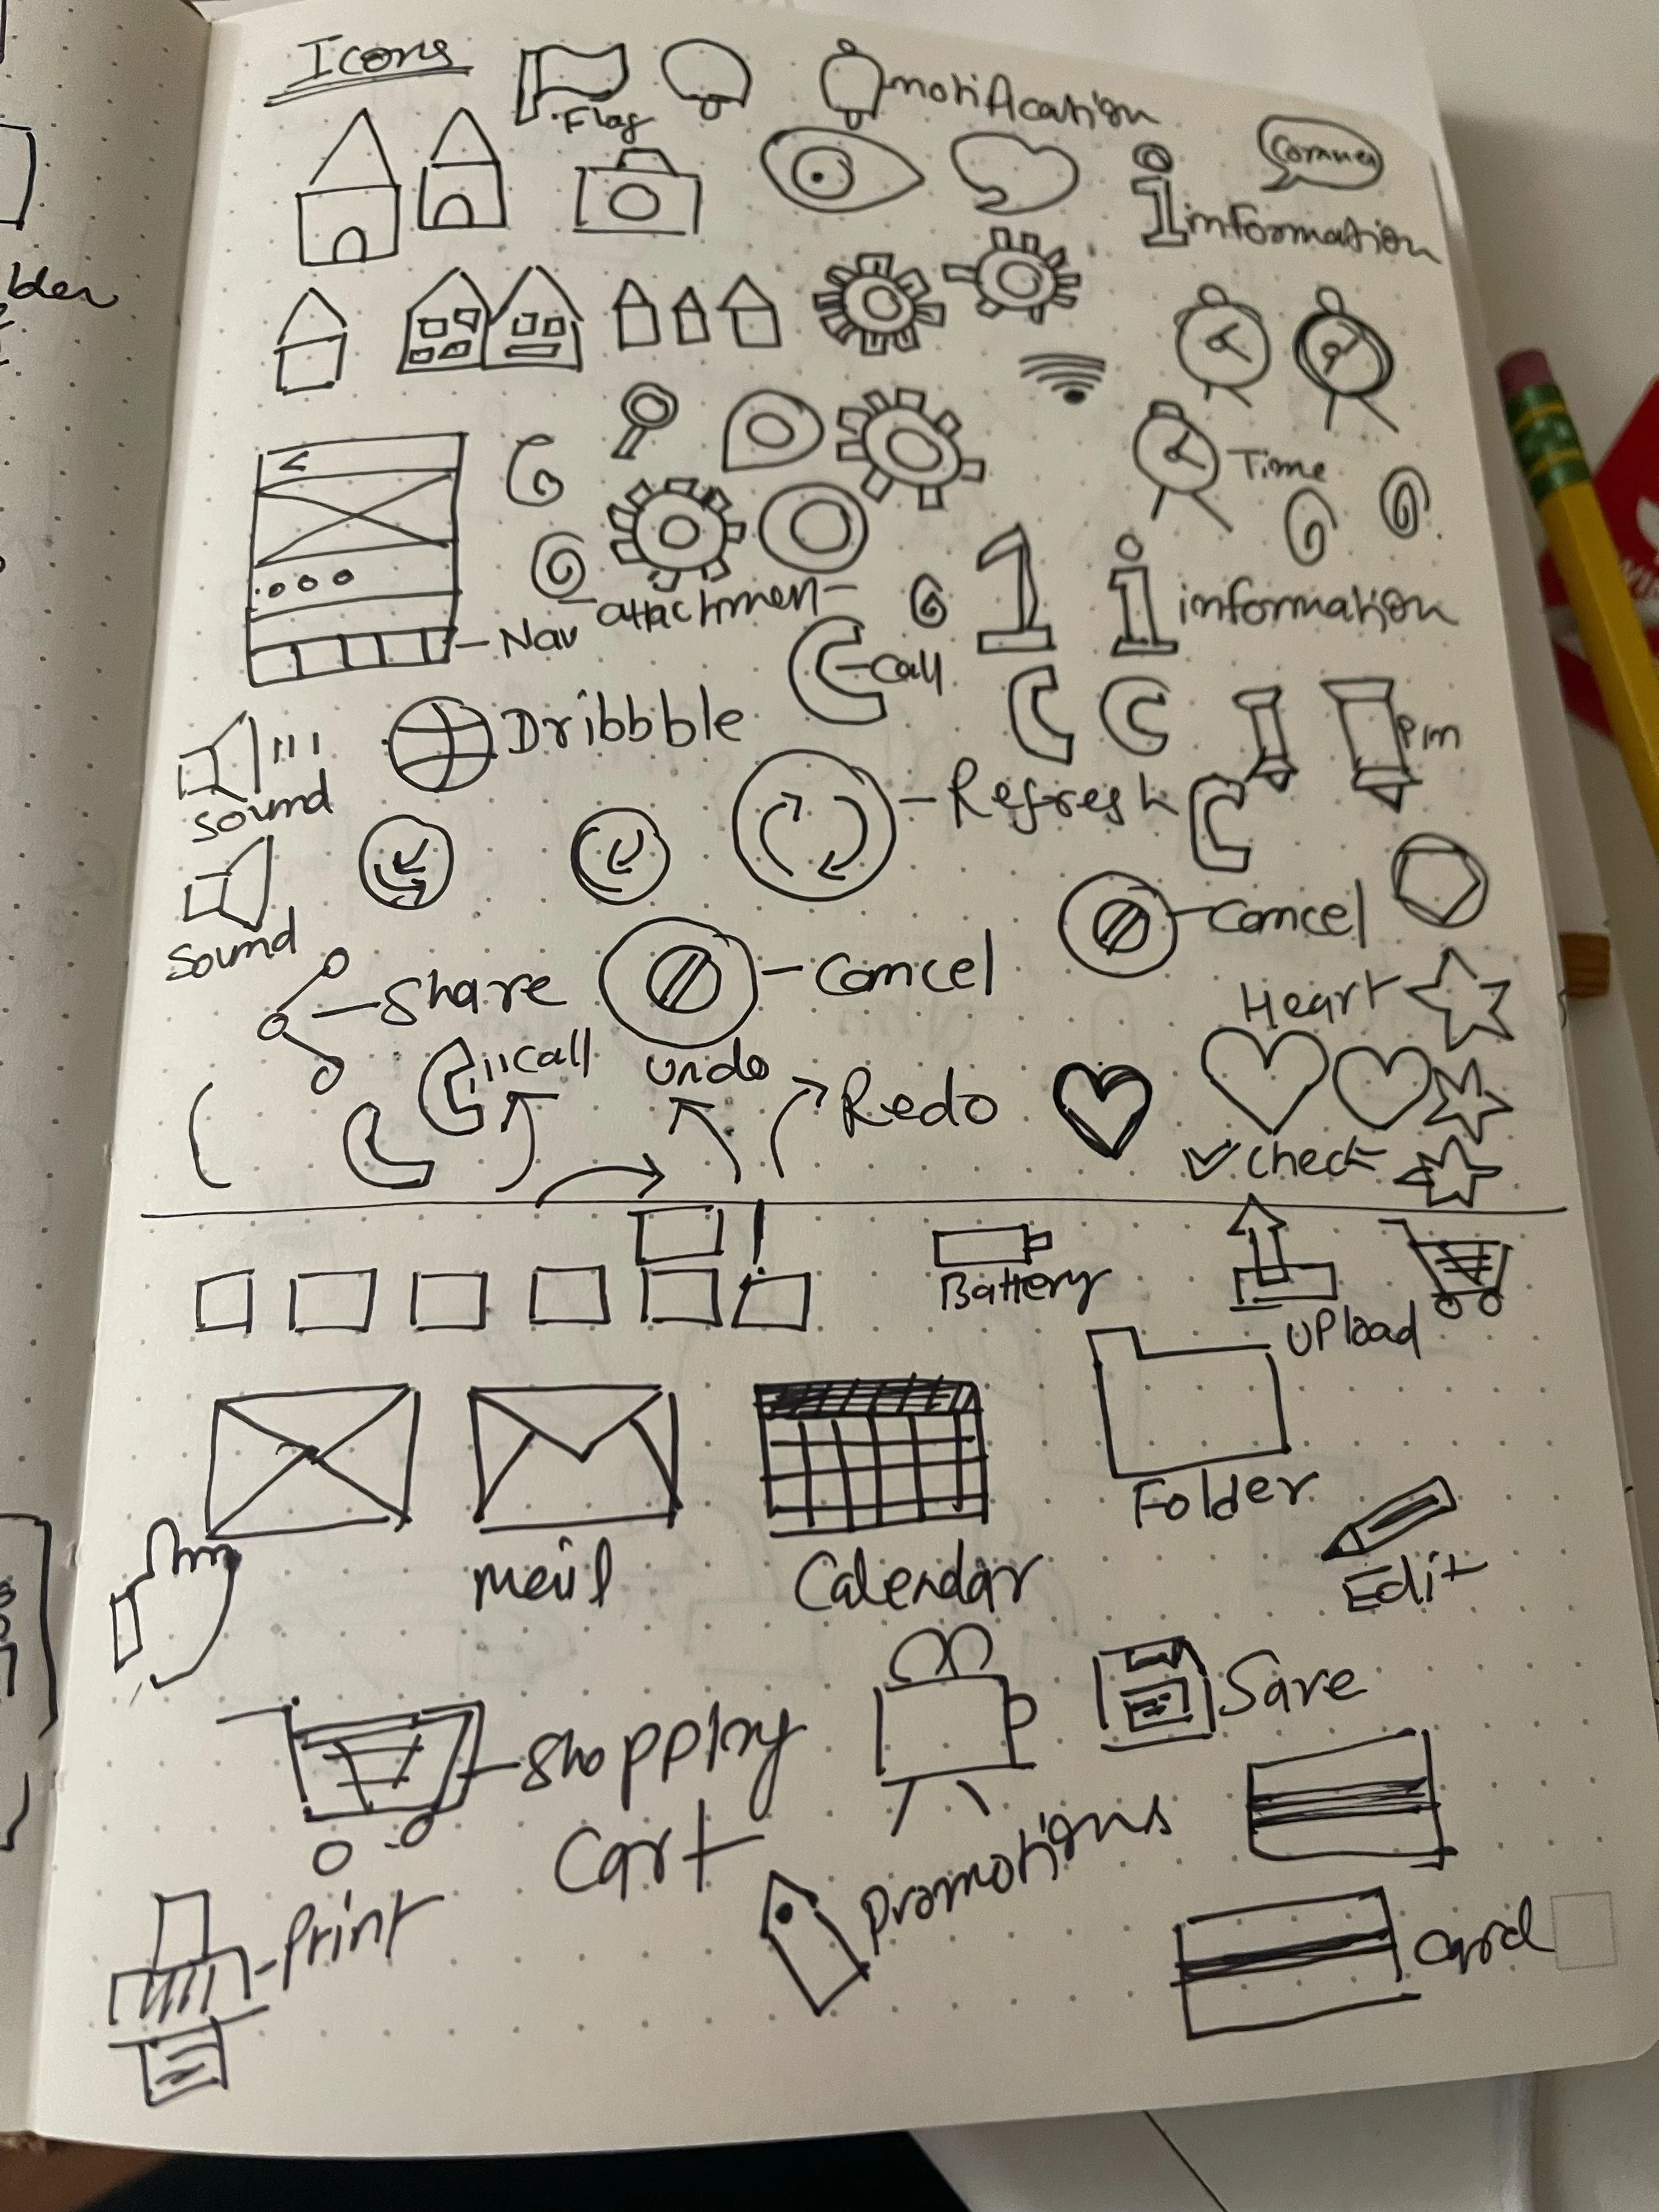 Icons
Flag
notification
Commen
information
Time
attachment
information
Nav
Call
Dribbble
Pin
Sound
Refresh
Sound
Cancel
Share
Cancel
Heart
Call
undo
Redo
check
Battery
Upload
Folder
mail
Calendar
Edit
Save
Shopping
Cart
Promotions
Print
Card